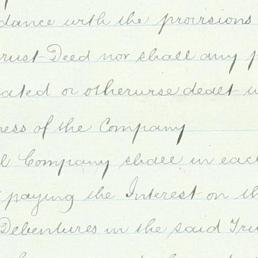 dance with the provisions
rust Deed nor shall any
ated or otherwise dealt
ess of the Company
l Company shall in each
paying the Interest on th
Debentures in the said Tru